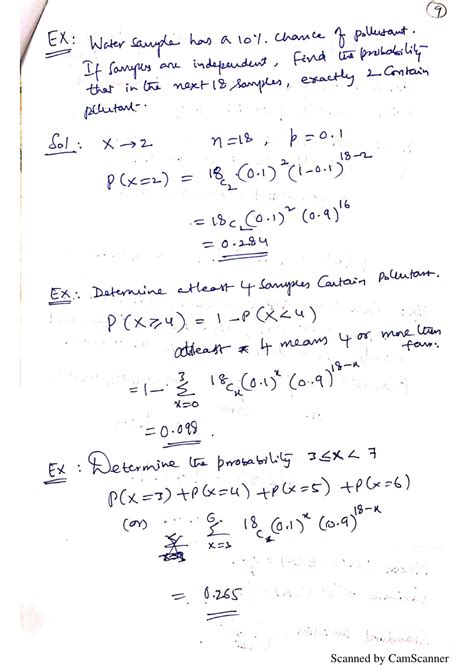 9
EX: Water sample has a 10% chance of pollutant.
If samples are independent, Find the probability
that in the next 18 samples, exactly 2 Contain
pollutant.
Sol: X → 2 n = 18, p = 0.1
P(X=2) = 18c₂ (0.1)² (1-0.1)¹⁸⁻²
= 18c₂ (0.1)² (0.9)¹⁶
= 0.284
Ex: Determine atleast 4 Samples Contain Pollutant.
P(X⩾4) = 1 - P(X<4)
atleast 4 means 4 or more than
four.
= 1 - 3 Σ x=0 18cₓ (0.1)ˣ (0.9)¹⁸⁻ˣ
= 0.098
Ex: Determine the probability 3 ≤ X < 7
P(X=3) + P(X=4) + P(X=5) + P(X=6)
(or) 6 Σ x=3 18cₓ (0.1)ˣ (0.9)¹⁸⁻ˣ
= 0.265
Scanned by CamScanner